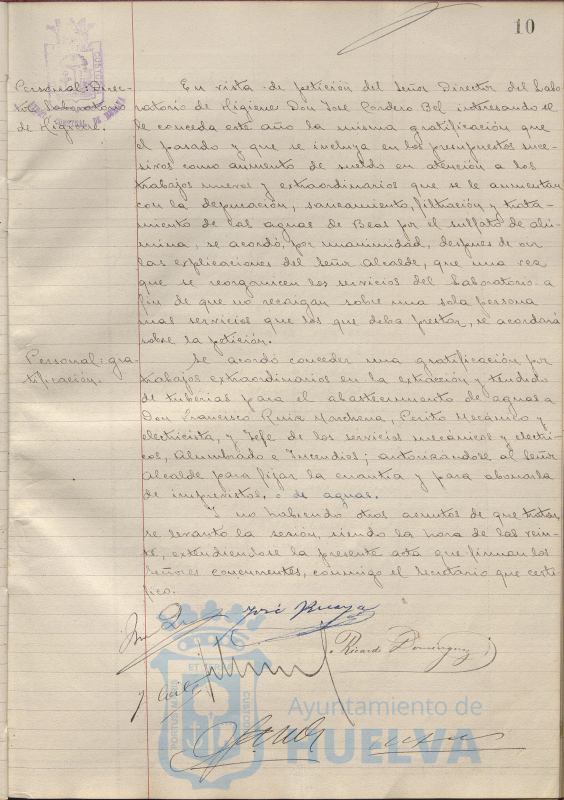 10
Personal: Direc-
tor Laboratorio
de Higiene.
En vista de petición del Señor Director del Labo-
ratorio de Higiene Don José Cordero Bel interesando se
le conceda este año la misma gratificación que
el pasado y que se incluya en los presupuestos suce-
sivos como aumento de sueldo en atención a los
trabajos nuevos y extraordinarios que se le aumentan
con la depuración, saneamiento, filtración y trata-
miento de las aguas de Beas por el sulfato de alú-
mina, se acordó, por unanimidad, despues de oir
las explicaciones del Señor Alcalde, que una vez
que se reorganicen los servicios del Laboratorio a
fin de que no recaigan sobre una sola persona
mas servicios que los que deba prestar, se acordará
sobre la petición.
Personal: gra-
tificación.
Se acordó conceder una gratificación por
trabajos extraordinarios en la extracción y tendido
de tuberias para el abastecimiento de aguas a
Don Francisco Ruiz Marchena, Perito Mecánico y
electricista, y Jefe de los servicios mecánicos y electri-
cos, Alumbrado e Incendios; autorizandose al Señor
Alcalde para fijar la cuantia y para abonarla
de imprevistos, o de aguas.
Y no habiendo otros asuntos de que tratar
se levantó la sesión, siendo la hora de las vein-
te, extendiendose la presente acta que firman los
Señores concurrentes, conmigo el Secretario que certi-
fico.
José
Ricardo Dominguez
Ayuntamiento de
HUELVA